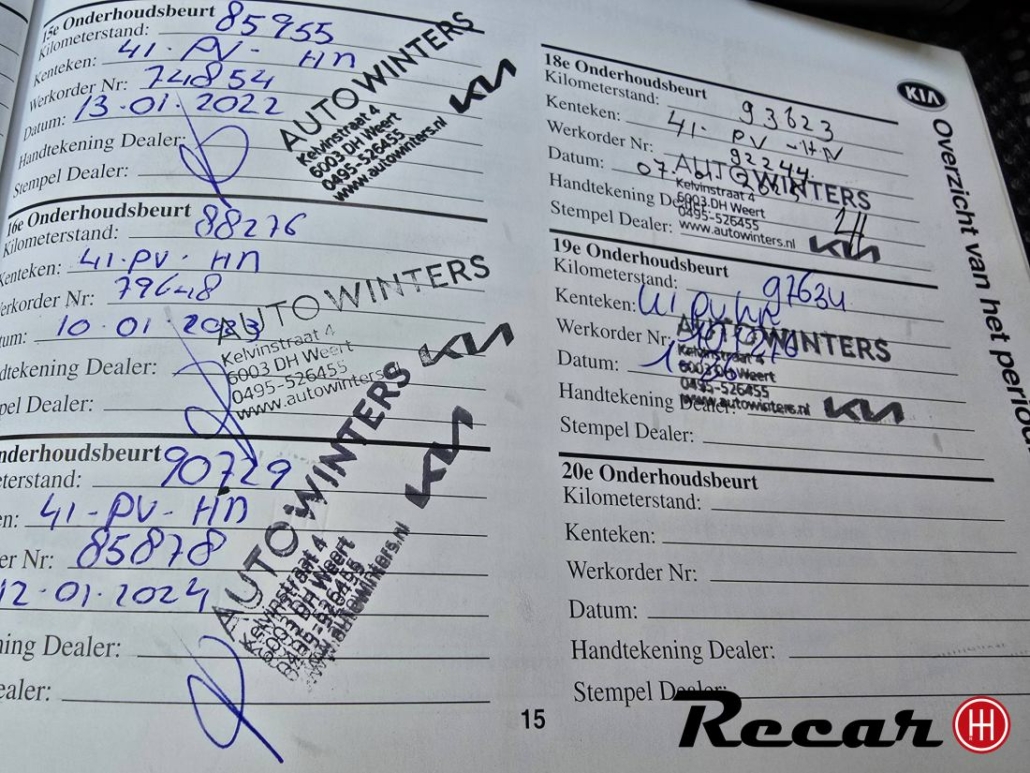 15e Onderhoudsbeurt
Kilometerstand: 85955
Kenteken: 41-PV-HN
Werkorder Nr: 74854
Datum: 13-01-2022
Handtekening Dealer:
Stempel Dealer:
AUTO WINTERS
Kelvinstraat 4
6003 DH Weert
0495-526455
www.autowinters.nl
KIA
16e Onderhoudsbeurt
Kilometerstand: 88276
Kenteken: 41-PV-HN
erkorder Nr: 79648
tum: 10-01-2023
dtekening Dealer:
pel Dealer:
AUTO WINTERS
Kelvinstraat 4
6003 DH Weert
0495-526455
www.autowinters.nl
KIA
nderhoudsbeurt
eterstand: 90729
en: 41-PV-HN
er Nr: 85878
12-01-2024
ning Dealer:
ealer:
AUTO WINTERS
Kelvinstraat 4
6003 DH Weert
0495-526455
www.autowinters.nl
KIA
18e Onderhoudsbeurt
Kilometerstand: 93623
Kenteken: 41-PV-HN
Werkorder Nr: 92244
Datum: 07
Handtekening Dealer:
Stempel Dealer:
AUTO WINTERS
Kelvinstraat 4
6003 DH Weert
0495-526455
www.autowinters.nl
KIA
19e Onderhoudsbeurt
Kilometerstand: 97634
Kenteken:
Werkorder Nr:
Datum:
Handtekening Dealer:
Stempel Dealer:
AUTO WINTERS
Kelvinstraat 4
6003 DH Weert
0495-526455
www.autowinters.nl
KIA
20e Onderhoudsbeurt
Kilometerstand:
Kenteken:
Werkorder Nr:
Datum:
Handtekening Dealer:
Stempel Dealer:
15
KIA
Overzicht van het period
Recar